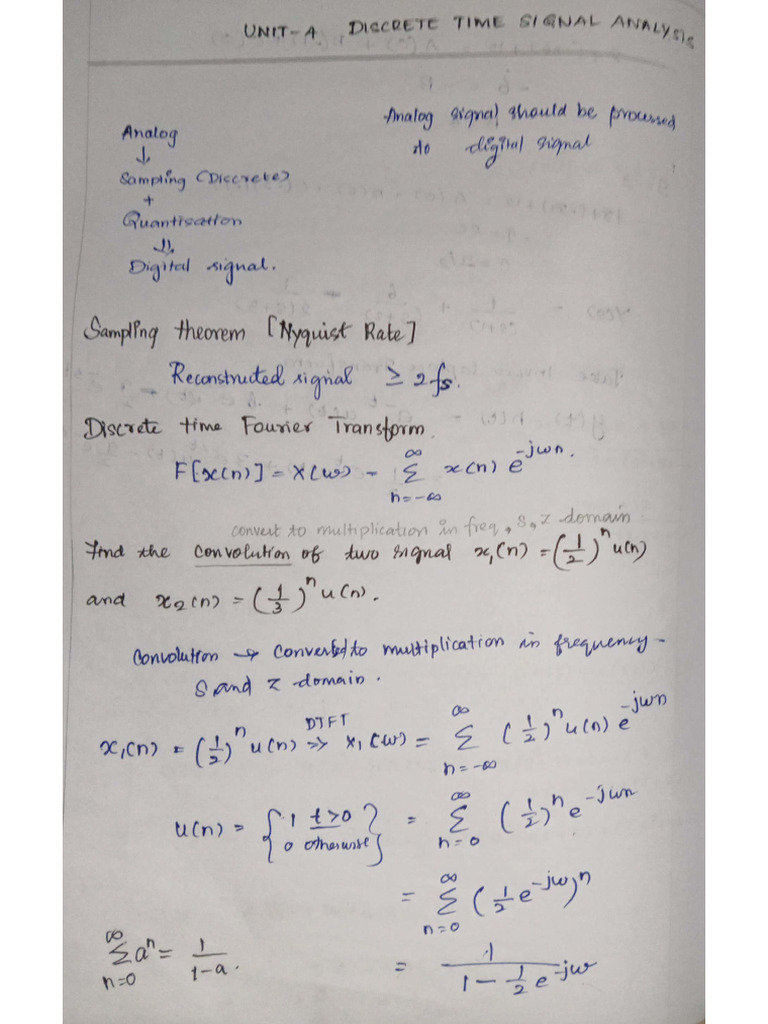 UNIT-4. DISCRETE TIME SIGNAL ANALYSIS
Analog signal should be processed
to digital signal
Analog
↓
Sampling (Discrete)
+
Quantisation
⇓
Digital signal.
Sampling theorem [Nyquist Rate]
Reconstructed signal ≥ 2fs.
Discrete time Fourier Transform.
F[x(n)] = X(ω) = Σ_{n=-∞}^{∞} x(n) e^{-jωn}.
convert to multiplication in freq, S, Z domain
Find the convolution of two signal x₁(n) = (1/2)ⁿ u(n)
and x₂(n) = (1/3)ⁿ u(n).
Convolution → Converted to multiplication in frequency -
S and Z domain.
x₁(n) = (1/2)ⁿ u(n) DTFT ⇒ X₁(ω) = Σ_{n=-∞}^{∞} (1/2)ⁿ u(n) e^{-jωn}
u(n) = {1 t>0 0 otherwise} = Σ_{n=0}^{∞} (1/2)ⁿ e^{-jωn}
= Σ_{n=0}^{∞} (1/2 e^{-jω})ⁿ
Σ_{n=0}^{∞} aⁿ = 1/(1-a). = 1/(1 - 1/2 e^{-jω})